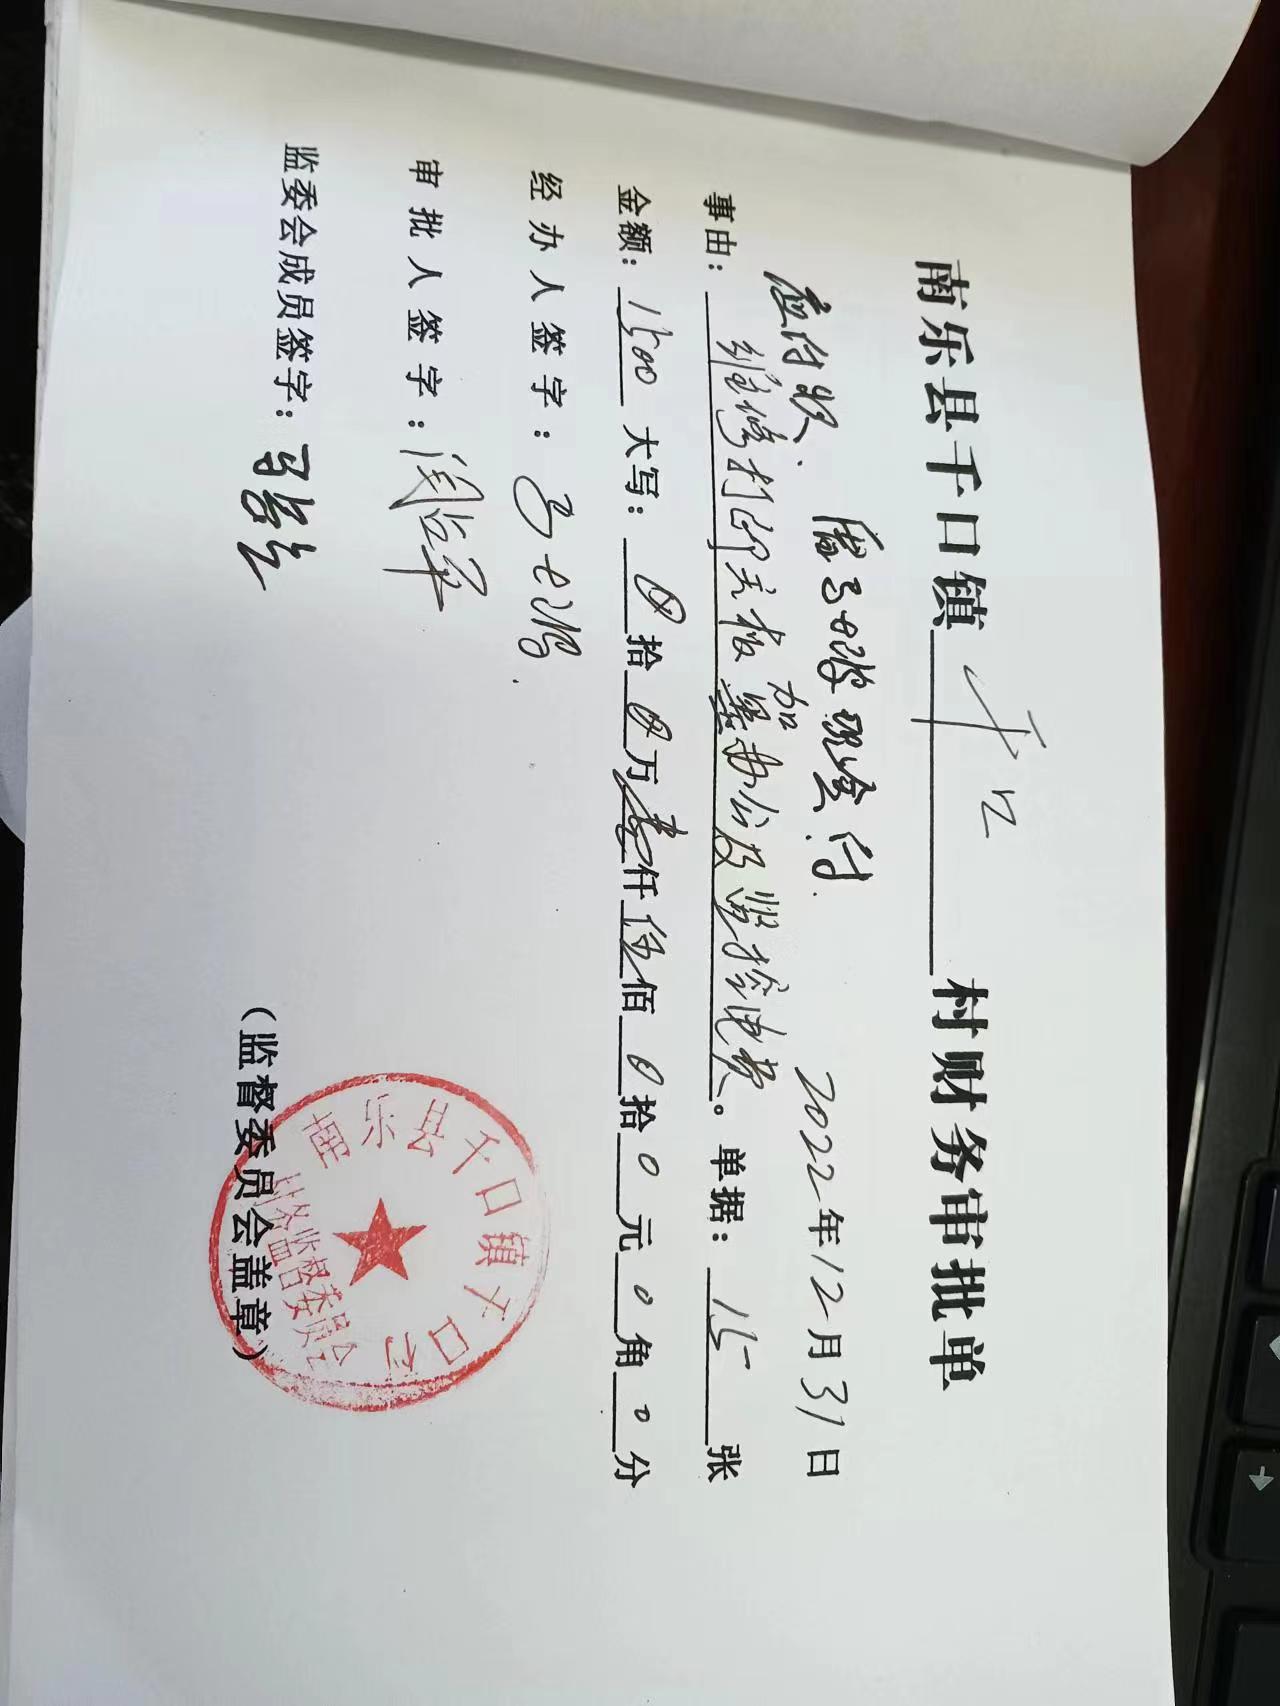 南乐县千口镇 千口 村财务审批单
2022年12月31日
应付款 现金付
事由：维修打印充板加墨办公及监控电费。单据：15张
金额：1500 大写：0拾0万壹仟伍佰0拾0元0角0分
经办人签字：
审批人签字：
监委会成员签字：
（监督委员会盖章）
南乐县千口镇千口村
村务监督委员会